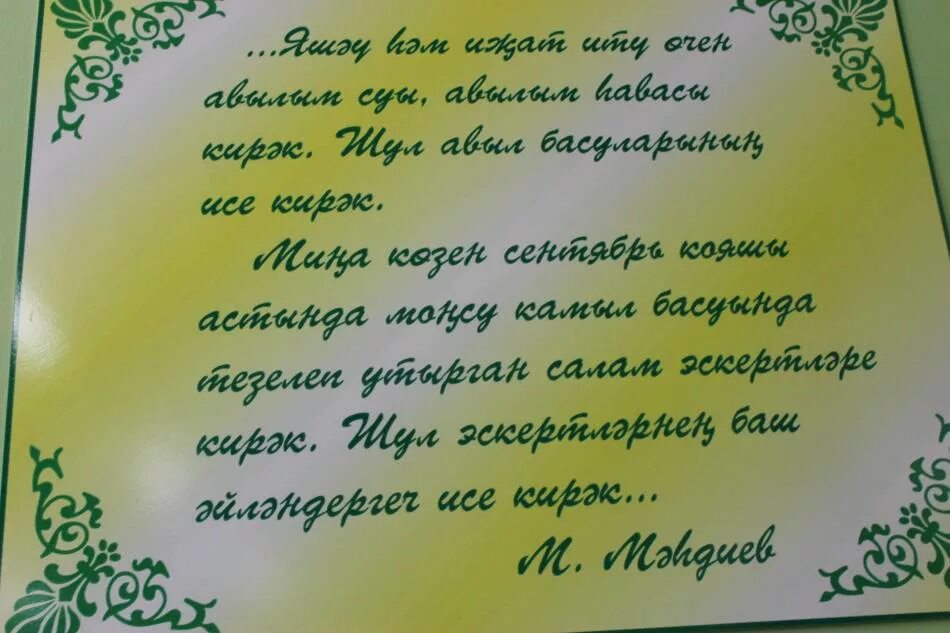 ...Яшәү һәм иҗат итү өчен
авылым суы, авылым һавасы
кирәк. Шул авыл басуларының
исе кирәк.
Миңа көзен сентябрь кояшы
астында моңсу камыл басуында
тезелеп утырган салам эскертләре
кирәк. Шул эскертләрнең баш
әйләндергеч исе кирәк...
М. Мәһдиев